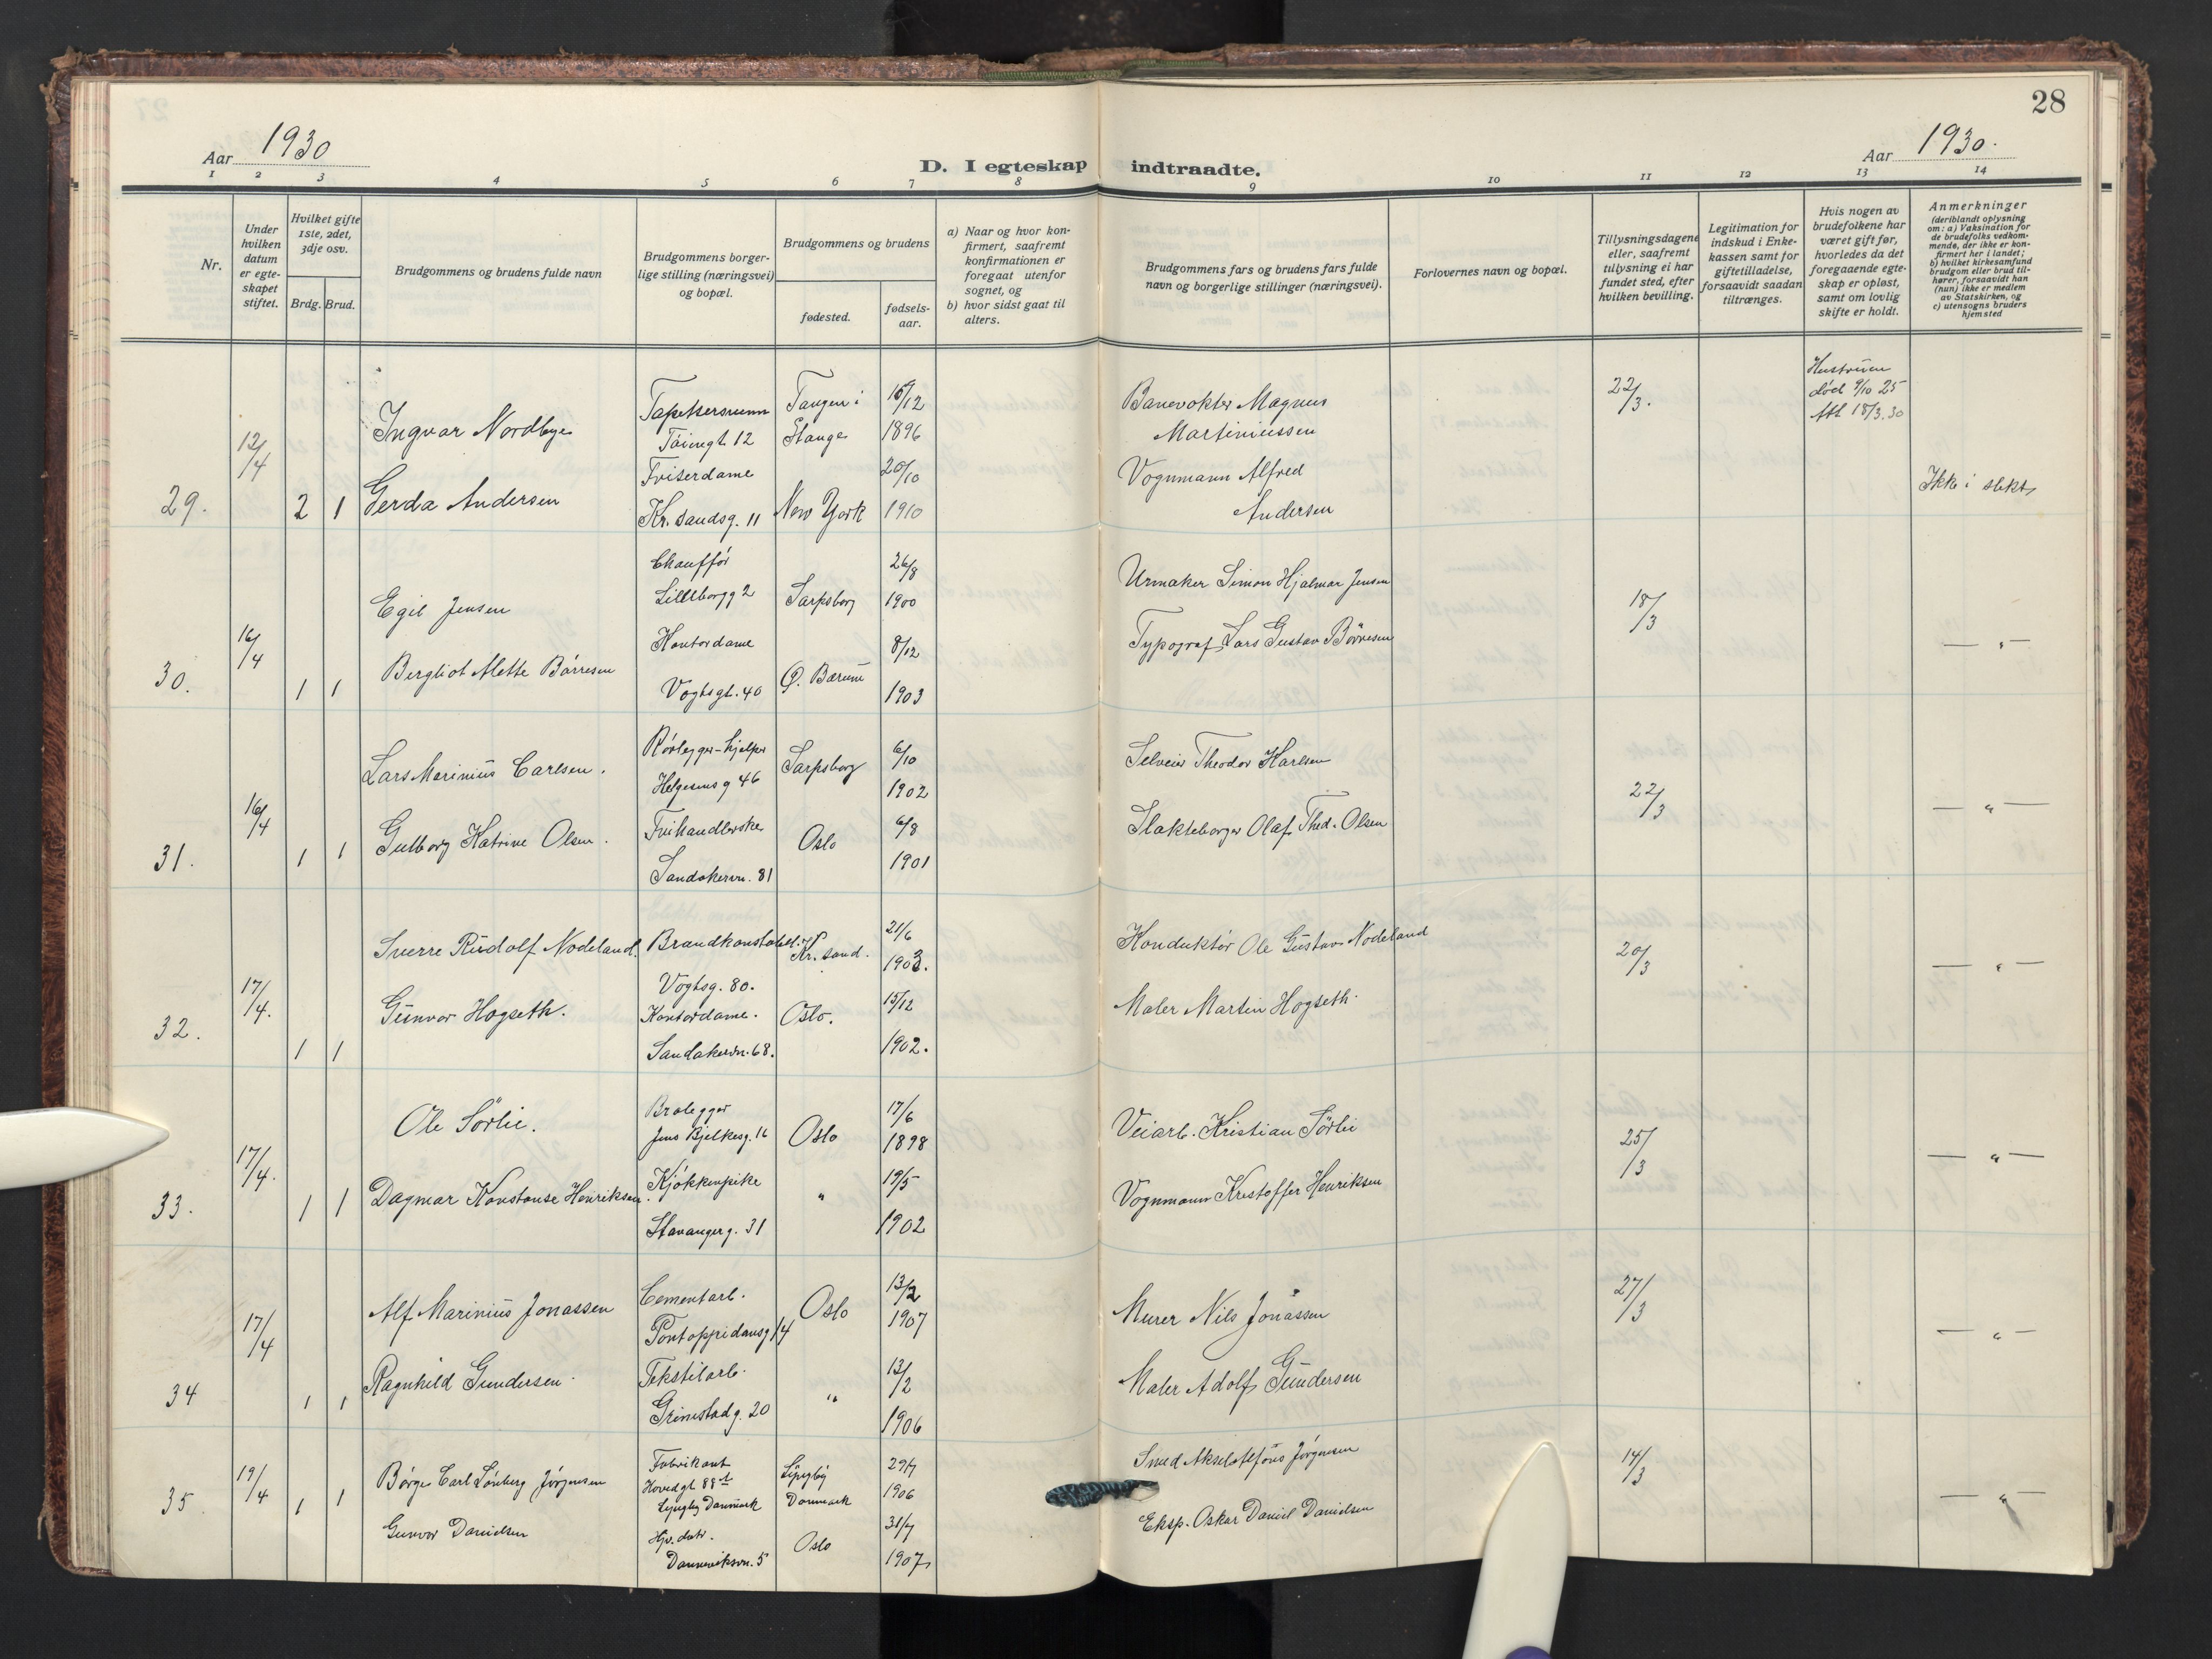 28
Aar 1930
Aar 1930.
D. I egteskap indtraadte.
1 2 3 4 5 6 7 8 9 10 11 12 13 14
Nr.
Under hvilken datum er egte-skapet stiftet.
Hvilket gifte 1ste, 2det, 3dje osv.
Brdg. Brud.
Brudgommens og brudens fulde navn
Brudgommens borger-
lige stilling (næringsvei)
og bopæl.
Brudgommens og brudens
fødested.
fødsels-
aar.
a) Naar og hvor kon-
firmert, saafremt
konfirmationen er
foregaat utenfor
sognet, og
b) hvor sidst gaat til
alters.
Brudgommens fars og brudens fars fulde
navn og borgerlige stillinger (næringsvei).
Forlovernes navn og bopæl.
Tillysningsdagene
eller, saafremt
tillysning ei har
fundet sted, efter
hvilken bevilling.
Legitimation for
indskud i Enke-
kassen samt for
giftetilladelse,
forsaavidt saadan
tiltrænges.
Hvis nogen av
brudefolkene har
været gift før,
hvorledes da det
foregaaende egte-
skap er opløst,
samt om lovlig
skifte er holdt.
Anmerkninger
(deriblandt oplysning
om: a) Vaksination for
de brudefolks vedkom-
mende, der ikke er kon-
firmert her i landet;
b) hvilket kirkesamfund
brudgom eller brud til-
hører, forsaavidt han
(hun) ikke er medlem
av Statskirken, og
c) utensogns bruders
hjemsted
29. 12/4 2 1
Ingvar Nordbye
Tapetserersvenn
Tøiengt. 12
Tangen i
Stange
/12
1896
Banevokter Magnus
Martiniussen
22/3.
Hustruen
død 9/10 25
Att 18/3.30
Gerda Andersen
Friserdame
Kr.sandsg. 11
New York
20/10
1910
Vognmann Alfred
Andersen
Ikke i slekt
30. 16/4 1 1
Egil Jensen
Chauffør
Lilleborgg 2
Sarpsborg
26/8
1900
Urmaker Simon Hjalmar Jensen
18/3
Bergliot Mette Børresen
Kontordame
Vogtsgt. 40
Ø. Bærum
8/12
1903
Typograf Lars Gustav Børresen
— " —
31. 16/4 1 1
Lars Marinius Carlsen.
Rørlegger-hjelper
Helgesens g 46
Sarpsborg
6/10
1902
Selveier Theodor Karlsen
22/3
Gulborg Katrine Olsen.
Frihandlerske
Sandakervn. 81
Oslo
6/8
1901
Slakteborger Olaf Thed. Olsen
— " —
32. 17/4. 1 1
Sverre Rudolf Nodeland.
Brandkonstabel.
Vogtsg. 80.
Kr. sand.
21/6
1903.
Konduktør Ole Gustav Nodeland
20/3
— " —
Gunvor Hogseth.
Kontordame.
Sandakervn. 68.
Oslo.
15/12
1902.
Maler Martin Hogseth.
33. 17/4. 1 1
Ole Sørlie.
Brolegger
Jens Bjelkesg. 16
Oslo
17/6
1898
Veiarb. Kristian Sørlie
25/3
— " —
Dagmar Konstanse Henriksen.
Kjøkkenpike
Stavangerg. 31
"
19/5
1902
Vognmann Kristoffer Henriksen
34 17/4 1 1
Alf Marinius Jonassen
Cementarb.
Pontoppidansg 14
Oslo
13/2
1907
Murer Nils Jonassen
27/3
— " —
Ragnhild Gundersen.
Tekstilarb.
Grimstadg. 20
"
13/2
1906
Maler Adolf Gundersen
35 19/4 1 1
Børge Carl Lønberg Jørgensen
Fabrikant
Hovedgt 88
Lyngby Danmark
Lyngby
Danmark
29/7
1906
Smed Aksel Alfons Jørgensen
14/3
— " —
Gunvor Danielsen
Hjv. datr.
Dannevikvn. 5
Oslo
31/7
1907
Eksp. Oskar Daniel Danielsen